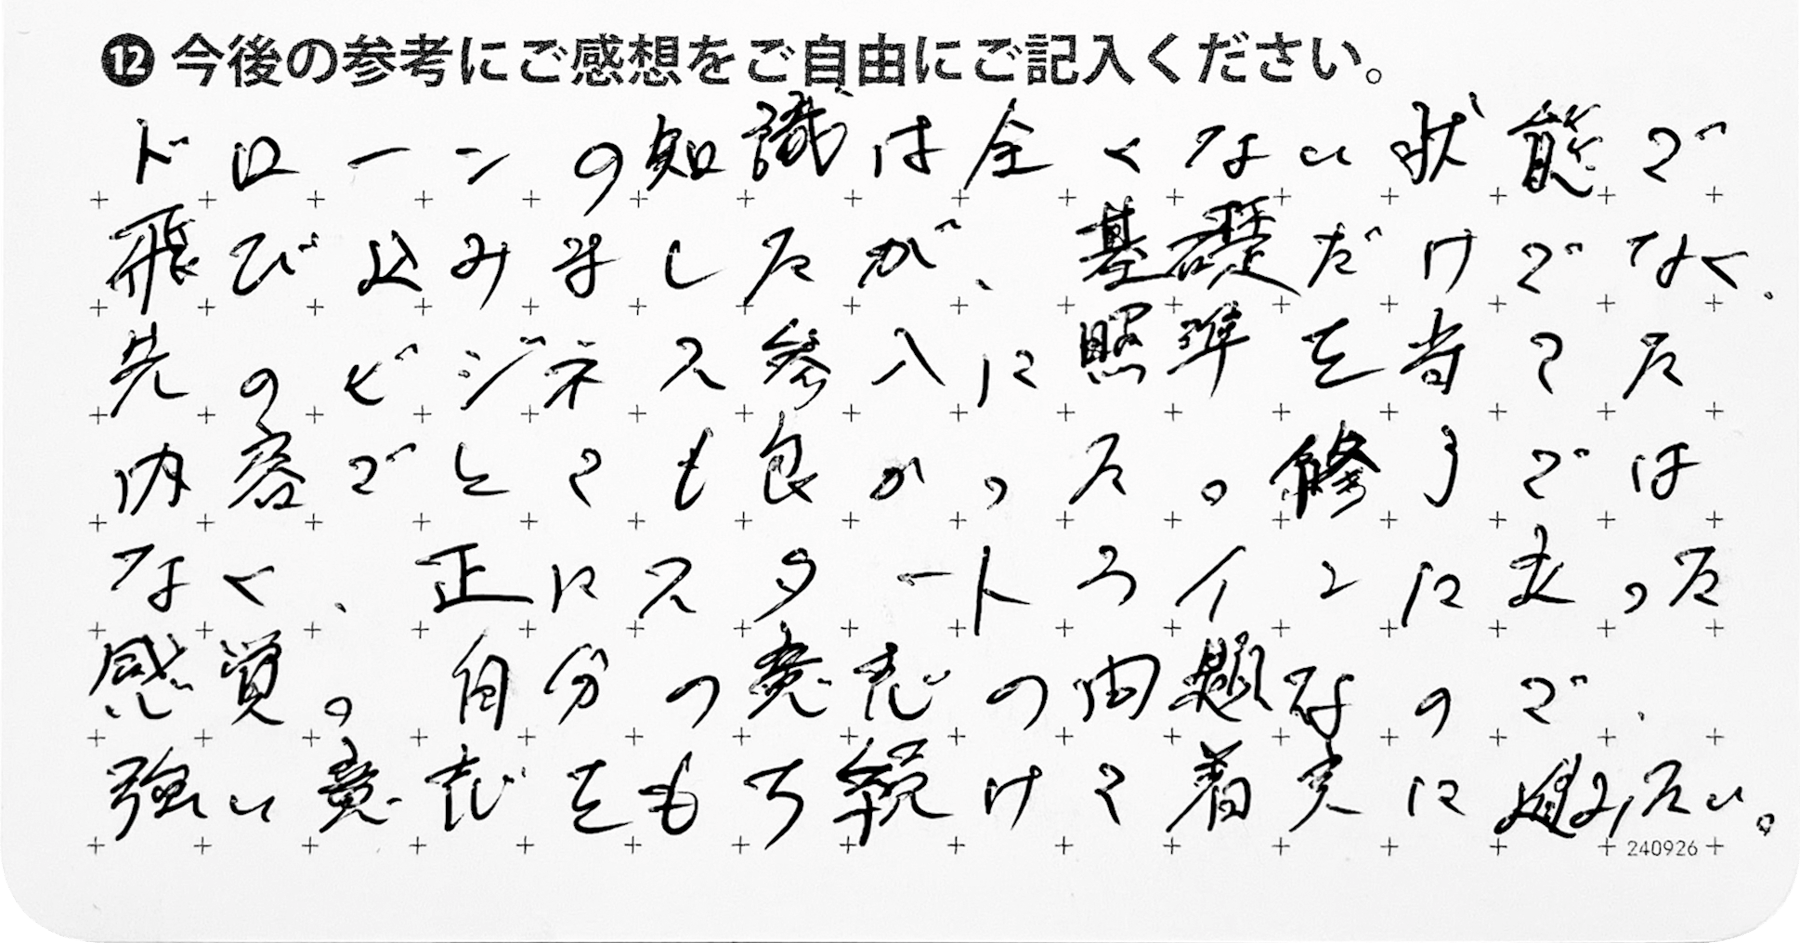 ⓬今後の参考にご感想をご自由にご記入ください。
ドローンの知識は全くない状態で
飛び込みましたが、基礎だけでなく、
先のビジネス参入に照準を当てた
内容でとても良かった。修了では
なく、正にスタートラインに立った
感覚。自分の意志の問題なので、
強い意志をもち続けて着実に進みたい。
240926